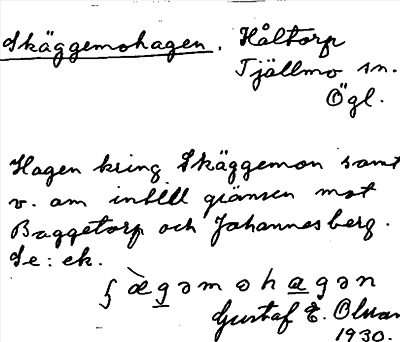 Skäggemohagen. Håltorp
Tjällmo sn.
Ögl.
Hagen kring Skäggemon samt
v. om intill gränsen mot
Baggetorp och Johannesberg.
Se: ek.
ʃæ̀gəmohagən
Gustaf E. Olsson
1930.